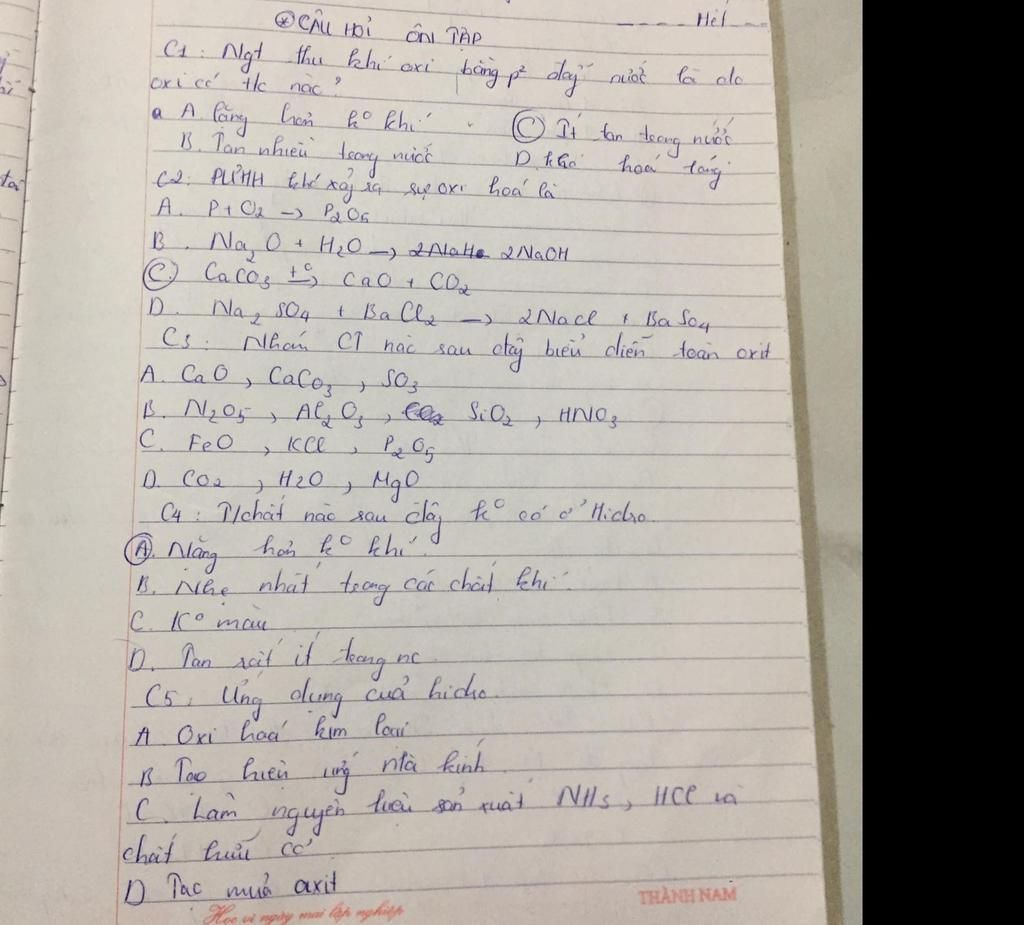 Hết
⊛ CÂU HỎI ÔN TẬP
C1: Ngt thu khí oxi bằng p² đẩy nước là do
oxi có t/c nào?
A. Nặng hơn k° khí
Ⓒ Ít tan trong nước
B. Tan nhiều trong nước
D. khó hoá lỏng
C2: PƯHH khí xảy ra sự oxi hoá là
A. P + O2 → P2O5
B. Na2O + H2O → 2NaOH
Ⓒ CaCO3 t°→ CaO + CO2
D. Na2SO4 + BaCl2 → 2NaCl + BaSO4
C3: Nhóm CT nào sau đây biểu diễn toàn oxit
A. CaO, CaCO3, SO3
B. N2O5, Al2O3, SiO2, HNO3
C. FeO, KCl, P2O5
D. CO2, H2O, MgO
C4: T/chất nào sau đây k° có ở Hidro.
Ⓐ. Nặng hơn k° khí.
B. Nhẹ nhất trong các chất khí.
C. K° màu
D. Tan rất ít trong nc
C5: Ứng dụng của hidro.
A Oxi hoá kim loại
B Tạo hiệu ứng nhà kính
C. Làm nguyên liệu sản xuất NH3, HCl và
chất hữu cơ
D Tạo mưa axit
Học vì ngày mai lập nghiệp
THÀNH NAM